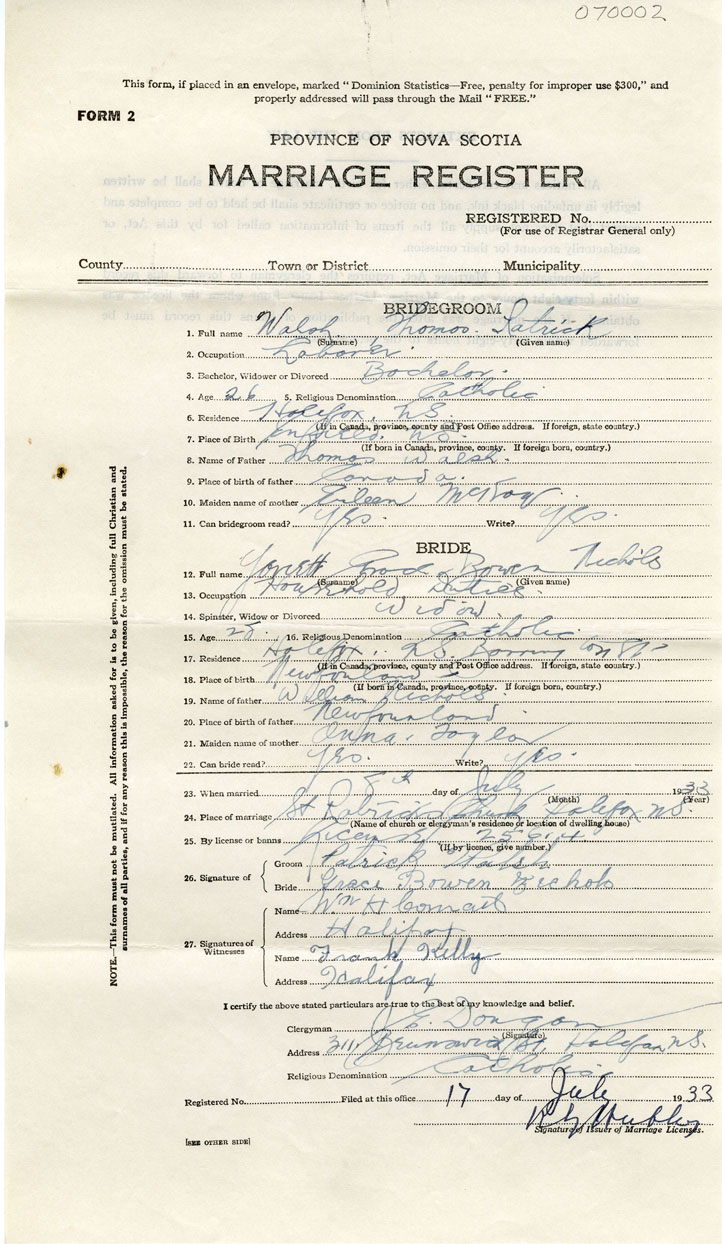 070002
This form, if placed in an envelope, marked "Dominion Statistics—Free, penalty for improper use $300," and
properly addressed will pass through the Mail "FREE."
FORM 2
PROVINCE OF NOVA SCOTIA
MARRIAGE REGISTER
REGISTERED No.
(For use of Registrar General only)
County Town or District Municipality
BRIDEGROOM
1. Full name Walsh Thomas Patrick
(Surname) (Given name)
2. Occupation Laborer.
3. Bachelor, Widower or Divorced Bachelor.
4. Age 26 5. Religious Denomination Catholic
6. Residence Halifax, N.S.
(If in Canada, province, county and Post Office address. If foreign, state country.)
7. Place of Birth N.S.
(If born in Canada, province, county. If foreign born, country.)
8. Name of Father Thomas Walsh.
9. Place of birth of father Canada.
10. Maiden name of mother Eileen
11. Can bridegroom read? Yes. Write? Yes.
BRIDE
12. Full name Grace Bowen Nichols
(Surname) (Given name)
13. Occupation Household Duties.
14. Spinster, Widow or Divorced Widow.
15. Age 16. Religious Denomination Catholic
17. Residence Halifax. N.S.
(If in Canada, province, county and Post Office address. If foreign, state country.)
18. Place of birth Newfounland
(If born in Canada, province, county. If foreign born, country.)
19. Name of father Nichols.
20. Place of birth of father Newfounland.
21. Maiden name of mother Anna. Taylor
22. Can bride read? Yes. Write? Yes.
23. When married 8th day of July 1933
(Month) (Year)
24. Place of marriage St Patricks Halifax N.S.
(Name of church or clergyman's residence or location of dwelling house)
25. By license or banns
(If by licence, give number.)
26. Signature of
Groom Patrick Walsh
Bride Grace Bowen Nichols
27. Signatures of Witnesses
Name Wm H
Address Halifax
Name Frank Kelly
Address Halifax
I certify the above stated particulars are true to the best of my knowledge and belief.
Clergyman
(Signature)
Address Brunswick St. Halifax N.S.
Religious Denomination Catholic.
Registered No. Filed at this office 17 day of July 1933
Signature of Issuer of Marriage Licenses.
[SEE OTHER SIDE]
NOTE.—This form must not be mutilated. All information asked for is to be given, including full Christian and
surnames of all parties, and if for any reason this is impossible, the reason for the omission must be stated.